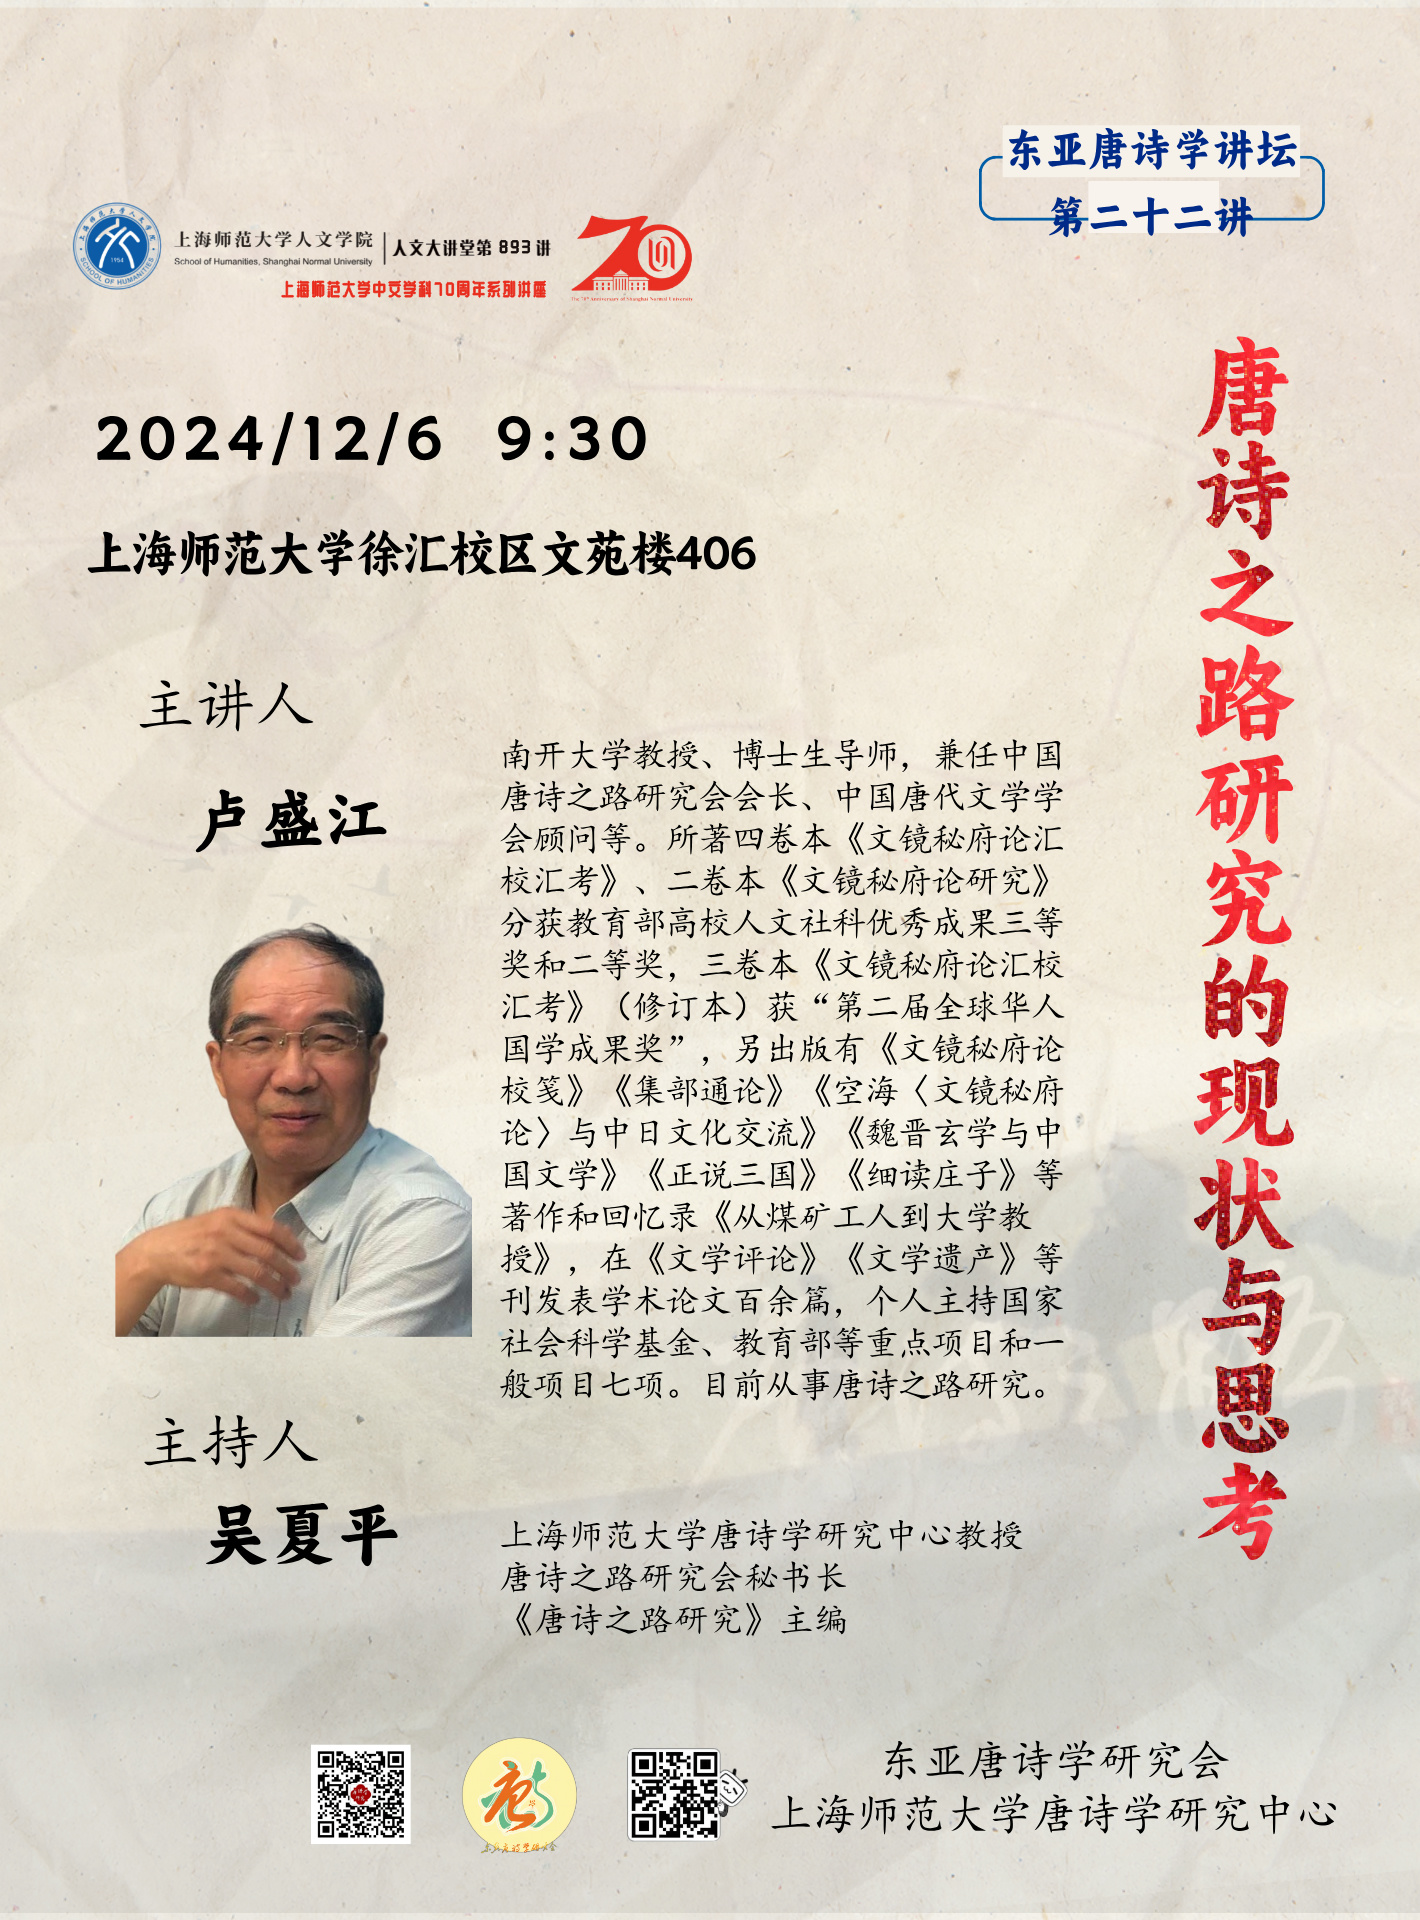 东亚唐诗学讲坛
第二十二讲
上海师范大学人文学院
School of Humanities, Shanghai Normal University
人文大讲堂第 893 讲
上海师范大学中文学科70周年系列讲座
SCHOOL OF HUMANITIES
1954
70
The 70th Anniversary of Shanghai Normal University
2024/12/6 9:30
上海师范大学徐汇校区文苑楼406
唐诗之路研究的现状与思考
主讲人
卢盛江
南开大学教授、博士生导师，兼任中国
唐诗之路研究会会长、中国唐代文学学
会顾问等。所著四卷本《文镜秘府论汇
校汇考》、二卷本《文镜秘府论研究》
分获教育部高校人文社科优秀成果三等
奖和二等奖，三卷本《文镜秘府论汇校
汇考》（修订本）获“第二届全球华人
国学成果奖”，另出版有《文镜秘府论
校笺》《集部通论》《空海〈文镜秘府
论〉与中日文化交流》《魏晋玄学与中
国文学》《正说三国》《细读庄子》等
著作和回忆录《从煤矿工人到大学教
授》，在《文学评论》《文学遗产》等
刊发表学术论文百余篇，个人主持国家
社会科学基金、教育部等重点项目和一
般项目七项。目前从事唐诗之路研究。
主持人
吴夏平
上海师范大学唐诗学研究中心教授
唐诗之路研究会秘书长
《唐诗之路研究》主编
东亚唐诗学研究会
上海师范大学唐诗学研究中心